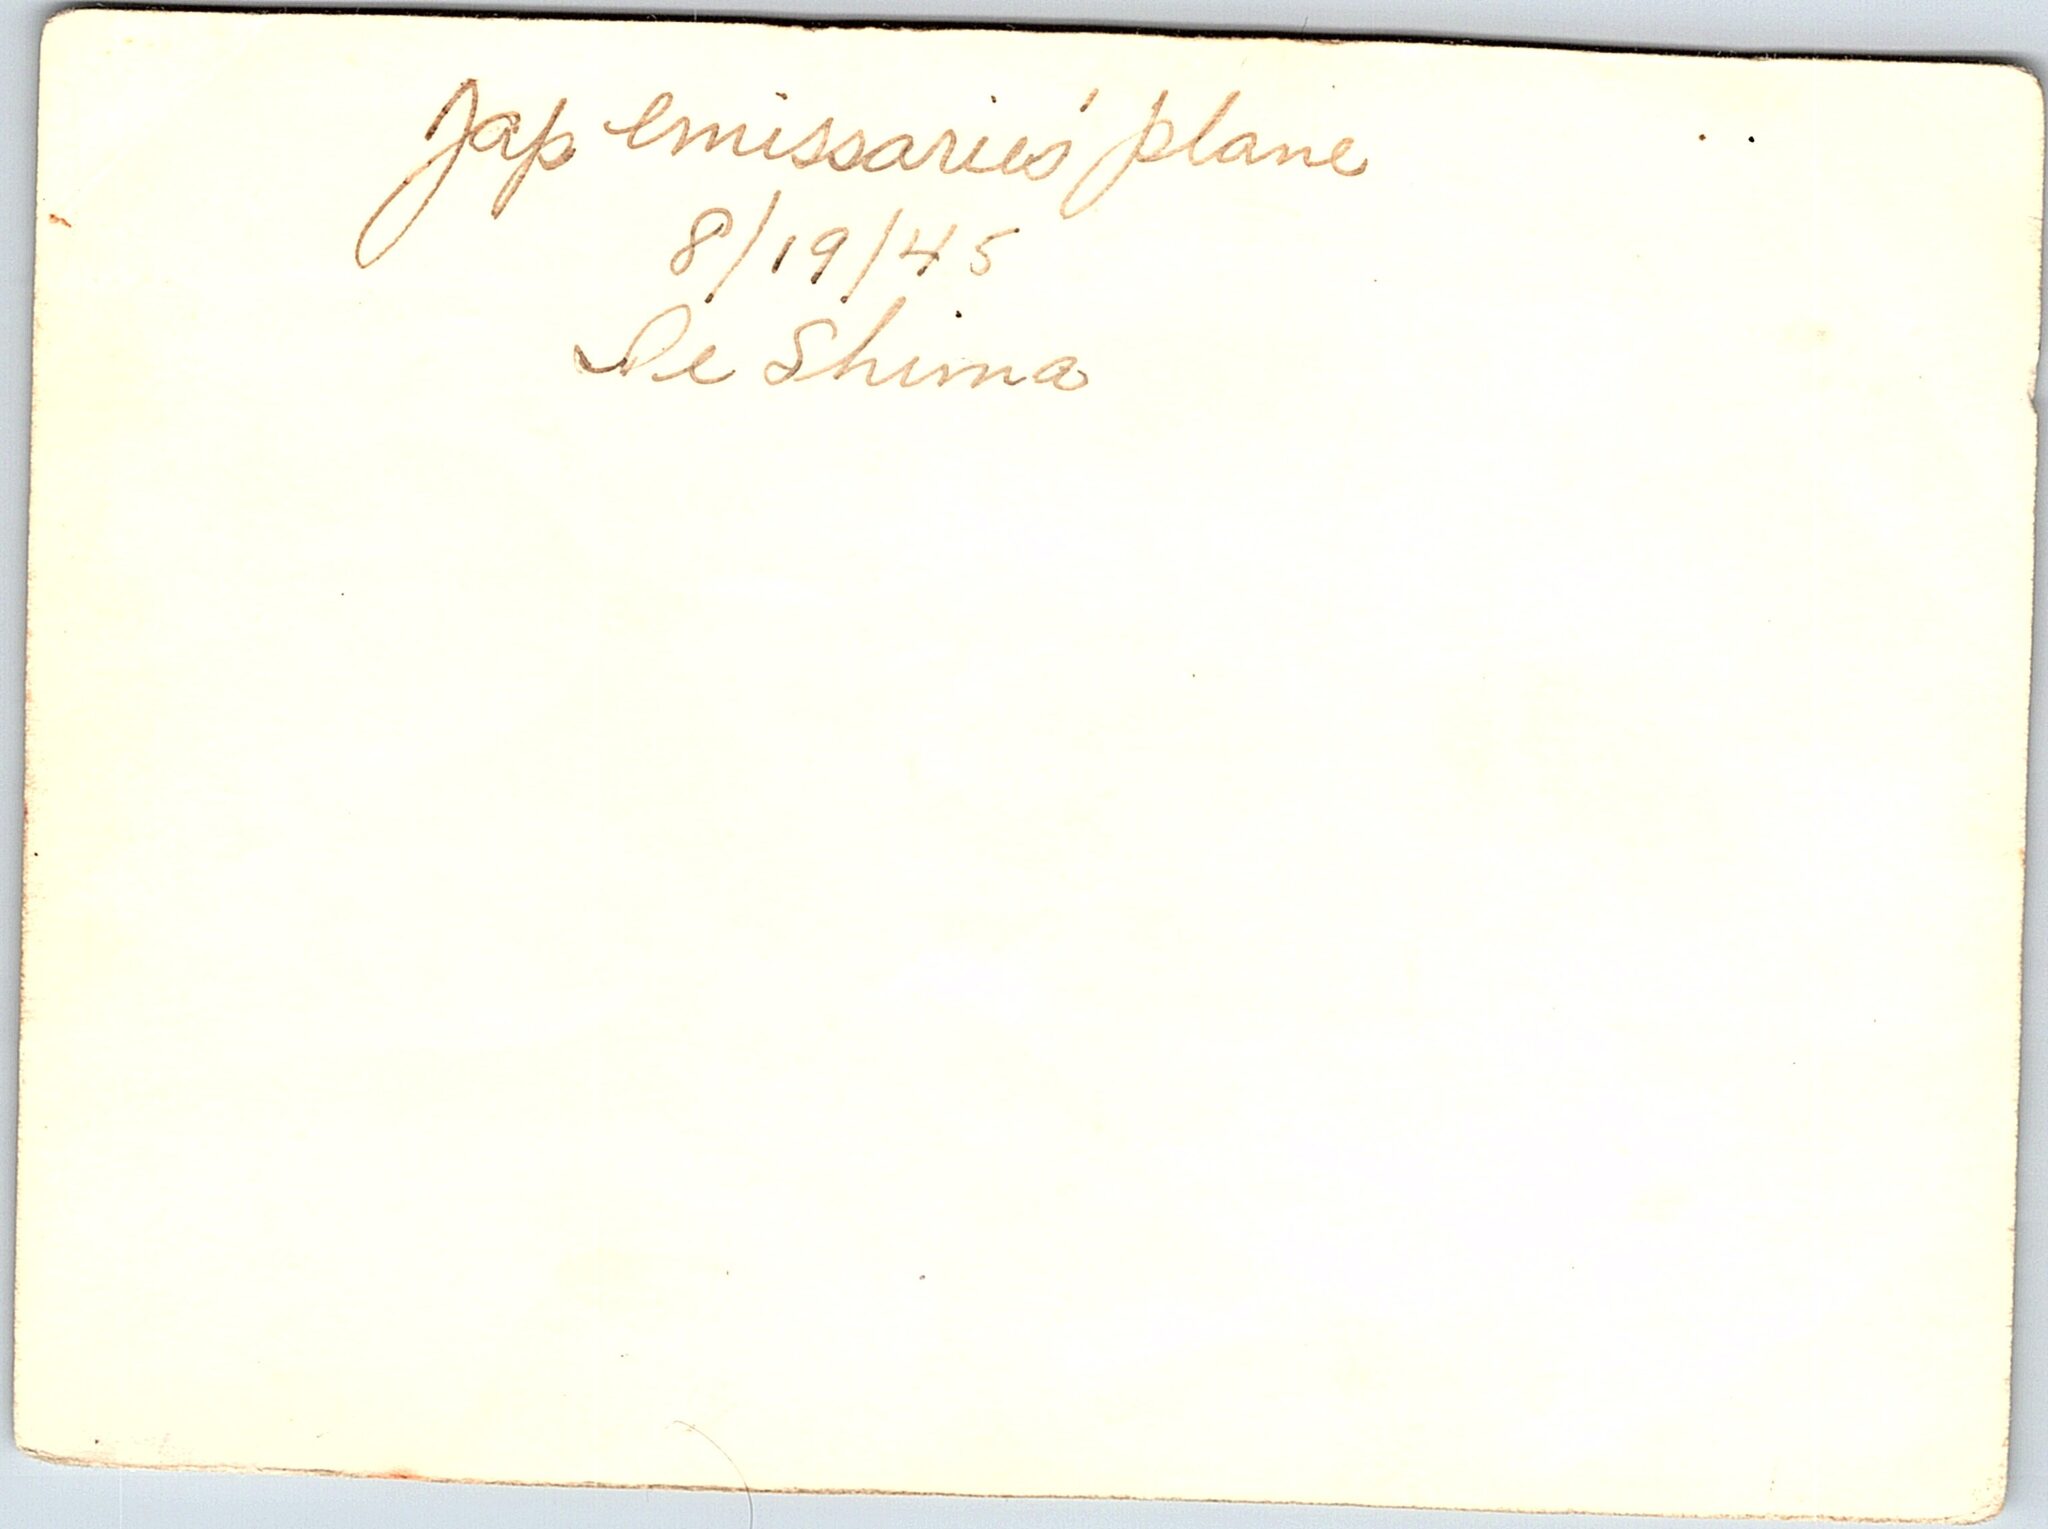 Jap emissaries' plane
8/19/45
Ie Shima